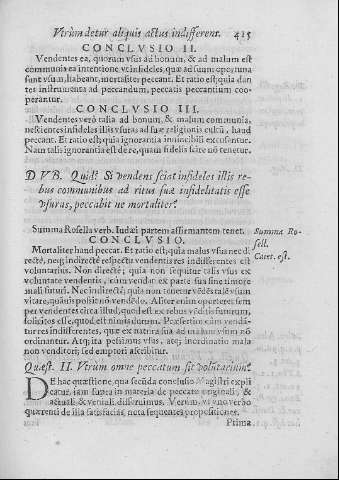 Vtrùm detur aliquis actus indifferent. 415
CONCLVSIO II.
Vendentes ea, quorum vsus ad bonum, & ad malum est
communis ea intentione vt infideles, quæ ad suum oportuna
sunt vsum, habeant, mortaliter peccant. Et ratio est; quia dan
tes instrumenta ad peccandum, peccatis peccantium coo-
perantur.
CONCLVSIO III.
Vendentes verò talia ad bonum, & malum communia,
nescientes infideles illis vsuros ad suæ religionis cultũ, haud
peccant. Et ratio est; quia ignorantia inuincibili excusentur.
Nam talis ignorantia est de re, quam fidelis scire nõ tenetur.
DVB. Quid? Si vendens sciat infideles illis re-
bus communibus ad ritus suæ infidelitatis esse
vsuras, peccabit ne mortaliter?
Summa Rosella verb. Iudæi partem affirmantem tenet. Summa Ro-
sell.
CONCLVSIO.
Caiet. est.
Mortaliter haud peccat. Et ratio est; quia malus vsus nec di
rectè, neq; indirectè respectu vendentis res indifferentes est
voluntarius. Non directè; quia non sequitur talis vsus ex
voluntate vendentis, cùm vendat ex parte sua sine timore
mali futuri. Nec indirectè; quia non tenetur vẽdẽs talẽ vsum
vitare, quãuis possit nõ vendẽdo. Aliter enim oporteret sem
per vendentes circa illud, quod est ex rebus vẽditis futurum,
solicitos esse, quod est nimis durum. Præsertim cùm vendã-
tur res indifferentes, quæ ex natura sua ad malum vsum nõ
ordinantur. Atq; ita pessimus vsus, atq; inordinatio mala
non venditori; sed emptori ascribitur.
Quæst. II. Vtrùm omne peccatum sit volũtariũ?
DE hac quæstione, qua secũda conclusio Magistri expli
catur, iam supra in materia de peccato originali, &
actuali, & veniali, disseruimus. Verùm, vt vno verbo
quærenti de illa satisfacias, nota sequentes propositiones.
Prima